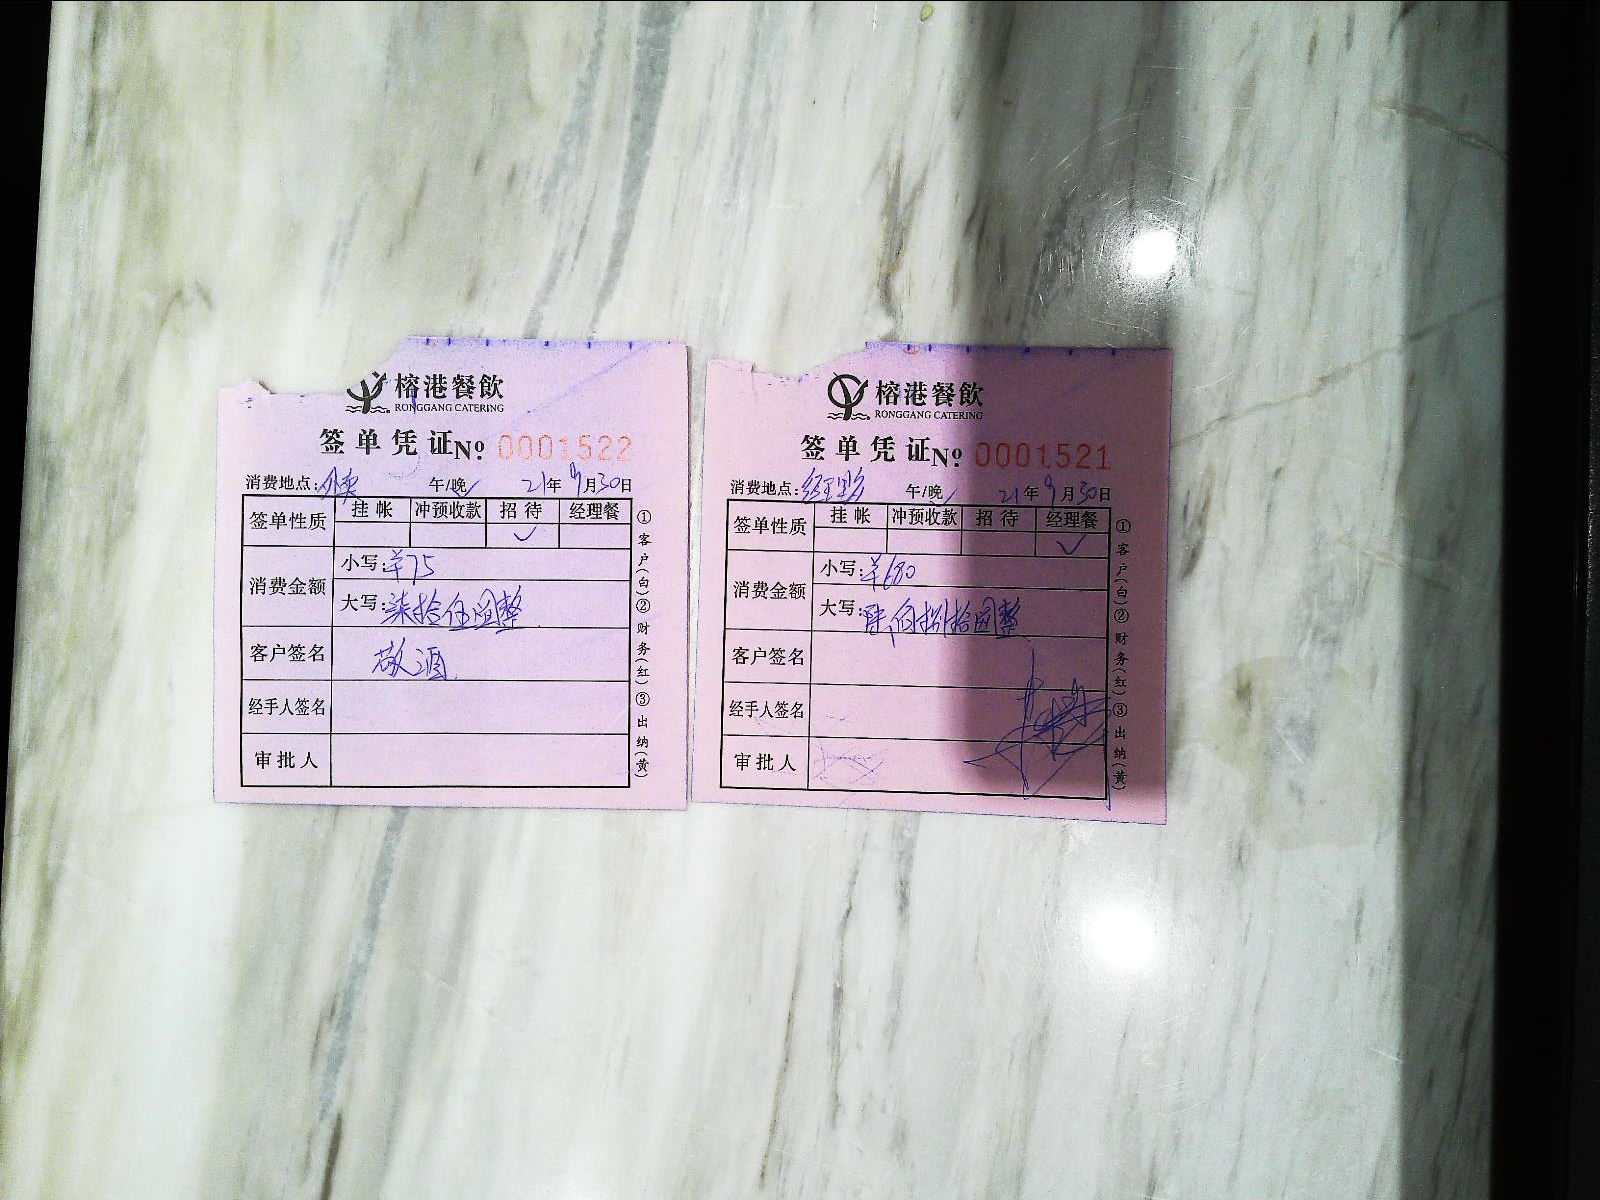 榕港餐飲
RONGGANG CATERING
签单凭证№ 0001522
消费地点:外卖 午/晚√ 21年9月30日
签单性质 挂帐 冲预收款 招待 经理餐
√
消费金额 小写:¥75
大写:柒拾伍圆整
客户签名 敬酒
经手人签名
审批人
①客户(白)②财务(红)③出纳(黄)
榕港餐飲
RONGGANG CATERING
签单凭证№ 0001521
消费地点: 午/晚√ 21年9月30日
签单性质 挂帐 冲预收款 招待 经理餐
√
消费金额 小写:¥680
大写:陆佰捌拾圆整
客户签名
经手人签名
审批人
①客户(白)②财务(红)③出纳(黄)